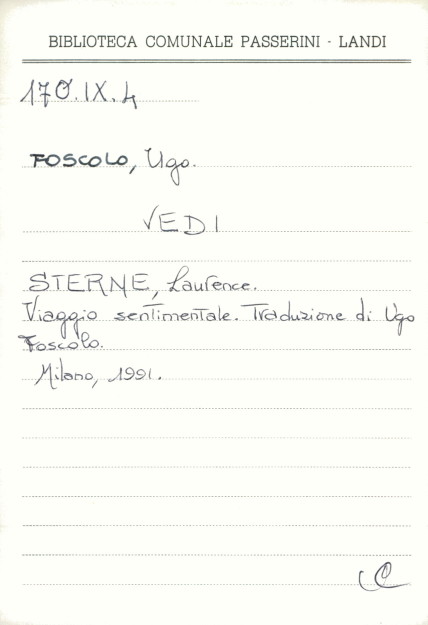 BIBLIOTECA COMUNALE PASSERINI - LANDI
170.IX.4
FOSCOLO, Ugo.
VEDI
STERNE, Laurence.
Viaggio sentimentale. Traduzione di Ugo
Foscolo.
Milano, 1991.